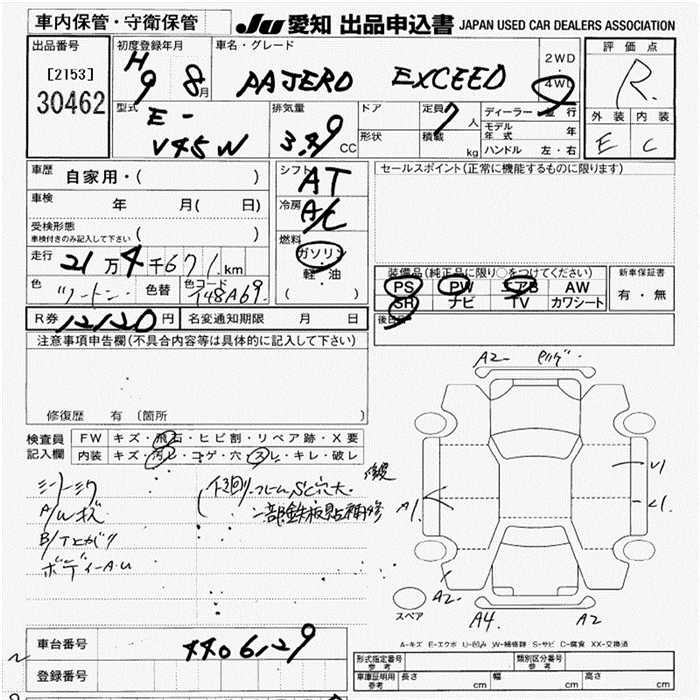 車内保管・守衛保管
JU 愛知 出品申込書 JAPAN USED CAR DEALERS ASSOCIATION
出品番号
[2153]
30462
初度登録年月
H9 8月
車名・グレード
PAJERO EXCEED
2WD
・
4WD
評価点
R
型式
E-
V45W
排気量
3.49 CC
ドア
形状
定員 7人
積載 kg
ディーラー・並行
モデル年式 年
ハンドル 左・右
外装 内装
E C
車歴 自家用・( )
車検 年 月( 日)
受検形態
車検付きのみ記入して下さい ( )
走行 21万4千671km
色 ツートン 色替 色コード
シフト AT
冷房 A/C
燃料
ガソリン
軽・油
( )
セールスポイント(正常に機能するものに限ります)
装備品(純正品に限り○をつけてください)
PS PW エアB AW
SR ナビ TV カワシート
新車保証書
有・無
後日品
R券 12120円 名変通知期限 月 日
注意事項申告欄(不具合内容等は具体的に記入して下さい)
修復歴 有 (箇所 )
検査員
記入欄
FW キズ・飛石・ヒビ割・リペア跡・X要
内装 キズ・汚レ・コゲ・穴・スレ・キレ・破レ
A/Wキズ
ボディーA.U
下回リフレームSC穴大
一部鉄板貼補修
A2
A1
A2
A4
A2
スペア
A-キズ E-エクボ U-凹み W-補修跡 S-サビ C-腐食 XX-交換済
車台番号 4406129
登録番号
形式指定番号
参考
類別区分番号
参考
車庫証明用
参考
長さ cm 幅 cm 高さ cm